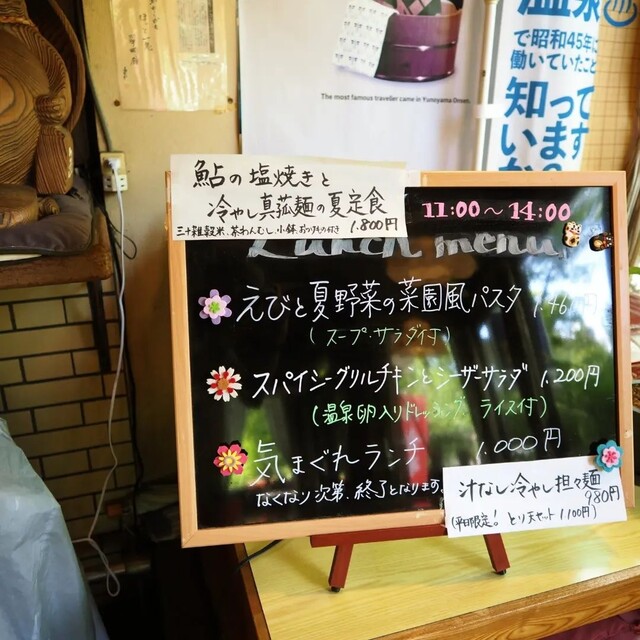 で昭和45年に
働いていたこと
知って
います
The most famous traveller came in Yunoyama Onsen.
鮎の塩焼きと
冷やし真菰麺の夏定食
三十雑穀米、茶わんむし、小鉢、おつけもの付き 1.800円
11:00～14:00
Lunch menu
えびと夏野菜の菜園風パスタ
(スープ・サラダ付)
スパイシーグリルチキンとシーザーサラダ 1.200円
(温泉卵入りドレッシング ライス付)
気まぐれランチ 1.000円
なくなり次第、終了となります。
汁なし冷やし担々麺
980円
(平日限定! とり天セット 1.100円)